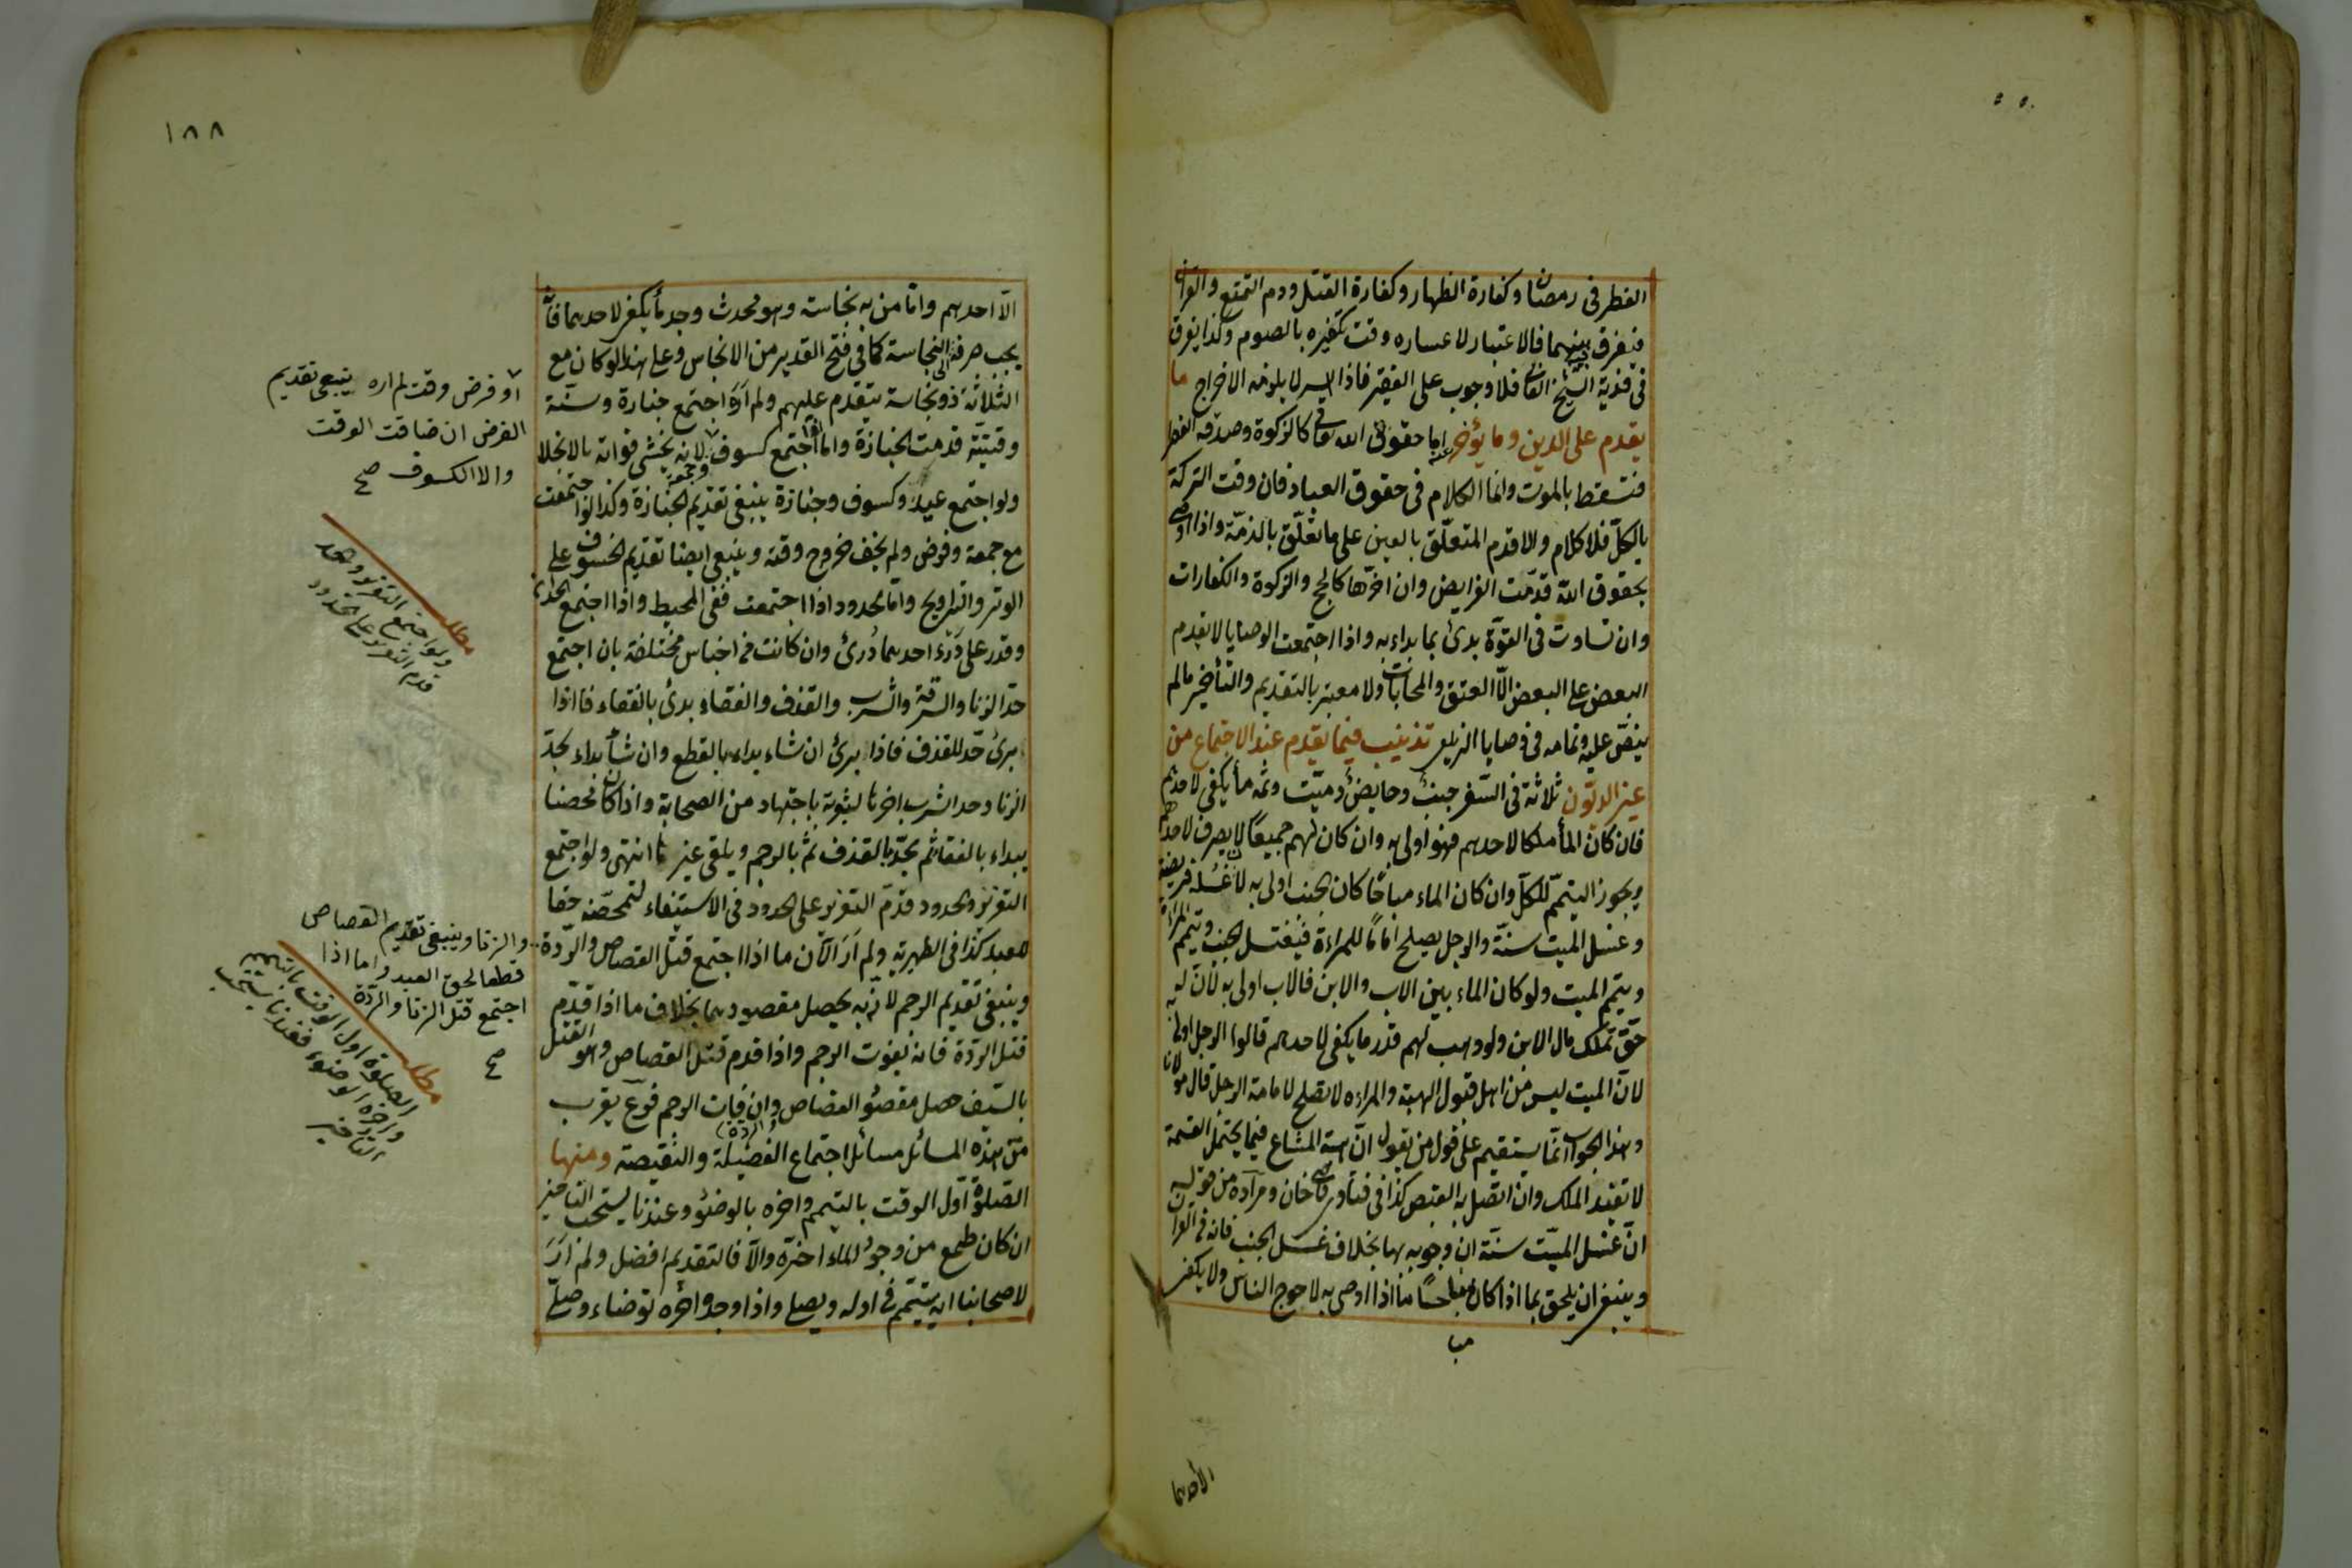 الفطر فى رمضان وكفارة الظهار وكفارة القتل ودم التمتع والقران
فيفرق بينهما فالاعتبار لاعساره وقت تكفيره بالصوم وكذا يفرق
فى فدية الشيخ الفانى فلا وجوب على الفقير فاذا ايسر لا يلزمه الاخراج ما
يقدم على الدين وما يؤخر عنه اما حقوق الله تعالى كالزكوة وصدقة الفطر
فتسقط بالموت وانما الكلام فى حقوق العباد فان وفت التركة
بالكلّ فلا كلام والا قدم المتعلّق بالعين على ما تعلّق بالذمّة واذا اوصى
بحقوق الله قدّمت الفرايض وان اخرّها كالحج والزكوة والكفارات
وان تساوت فى القوّة بدئ بما بداء به واذا اجتمعت الوصايا لا يقدم
البعض على البعض الّا العتق والمحابات ولا معتبر بالتقديم والتأخير مالم
ينصّ عليه وتمامه فى وصايا الزيلعى تذنيب فيما يقدم عند الاجتماع من
غير الديون ثلاثة فى السّفر جنب وحايض وميّت وثمّه مأ يكفى لاحدهم
فان كان المأ ملكا لاحدهم فهو اولى به وان كان لهم جميعًا لا يصرف لاحدهم
ويجوز التيمّم للكلّ وان كان الماء مباحًا كان الجنب اولى به لان غسله فريضة
وغسل الميت سنّة والرجل يصلح امامًا للمراءة فيغتسل الجنب وتيمم المراءة
وييمّم الميت ولو كان الماء بين الاب والابن فالاب اولى به لانّ له
حقّ تملّك مال الابن ولو وهب لهم قدر ما يكفى لاحدهم قالوا الرجل اولى به
لانّ الميت ليس من اهل قبول الهبة والمراءه لا تصلح لامامة الرجل قال مولانا
وهذا الجواب انّما يستقيم على قول من يقول انّ هبة المشاع فيما يحتمل القسمة
لا تفيد الملك وان اتّصل به القبض كذا فى فتاوى قاضى خان ومراده من قوليه
انّ غسل الميّت سنّة ان وجوبه بها بخلاف غسل الجنب فانه فى القران
وينبغى ان يلحق بما اذا كان مباحًا ما اذا اوصى به لاحوج الناس ولا يكفى
الّا احدهم
١٨٨
الّا احدهم وامّا من به نجاسة وهو محدث وجد مأ يكفى لاحدهما فانّه
يجب صرفه الى النجاسة كما فى فتح القدير من الانجاس وعلى هذا لو كان مع
الثلاثة ذو نجاسة يتقدم عليهم ولم اره اجتمع جنازة وسنّة
وقتيّة قدمت الجنازة واما اذا اجتمع كسوف لانه يخشى فواته بالانجلا
ولو اجتمع عيد وكسوف وجنازة ينبغى تقديم الجنازة وكذا لو اجتمعت
مع جمعة وفرض ولم يخف خروج وقته وينبغى ايضا تقديم الخسوف على
الوتر والتراويح وامّا الحدود اذا اجتمعت ففى المحيط واذا اجتمع الحدان
وقدر على درء احدهما درئ وان كانت من اجناس مختلفة بان اجتمع
حدّ الزنا والسرقة والشرب والقذف والفقاء بدئ بالفقاء فاذا
برئ حدّ للقذف فاذا برئ ان شاء بداء بالقطع وان شأ بداء بحدّ
الزنا وحد الشرب اخرها لثبوته باجتهاد من الصحابة واذا كان محصنا
يبداء بالفقاء ثم بحدّ القذف ثمّ بالرجم ويلغى غيرها انتهى ولو اجتمع
التعزير والحدود قدّم التعزير على الحدود فى الاستيفاء لتمحّضه حقا
للعبد كذا فى الظهيرية ولم ار الآن ما اذا اجتمع قتل القصاص والرّدة
وينبغى تقديم الرجم لانّه به يحصل مقصودهما بخلاف ما اذا قدّم
قتل الردّة فانه يفوت الرجم واذا قدم قتل القصاص وهو القتل
بالسيف حصل مقصود القصاص والردة وان فات الرجم فرع يقرب
من هذه المسائل مسائل اجتماع الفضيلة والنقيصة ومنها
الصّلوة اوّل الوقت بالتيمم واخره بالوضوٌ وعندنا يستحب التاخير
ان كان طمع من وجود الماء اخره والّا فالتقديم افضل ولم ار
لاصحابنا انه يتيمّم فى اوله ويصلى واذا وجده اخره توضاء وصلّى
او فرض وقت لم اره ينبغى تقديم
الفرض ان ضاقت الوقت
والا الكسوف صح
مطلب
ولو اجتمع التعزير والحد
قدم التعزير على الحدود
والزنا وينبغى تقديم القصاص
قطعا لحق العبد واما اذا
اجتمع قتل الزنا والردّة
صح
مطلب
الصلوة اول الوقت بالتيمم
واخره الوضوء فعندنا يستحب
التاخير